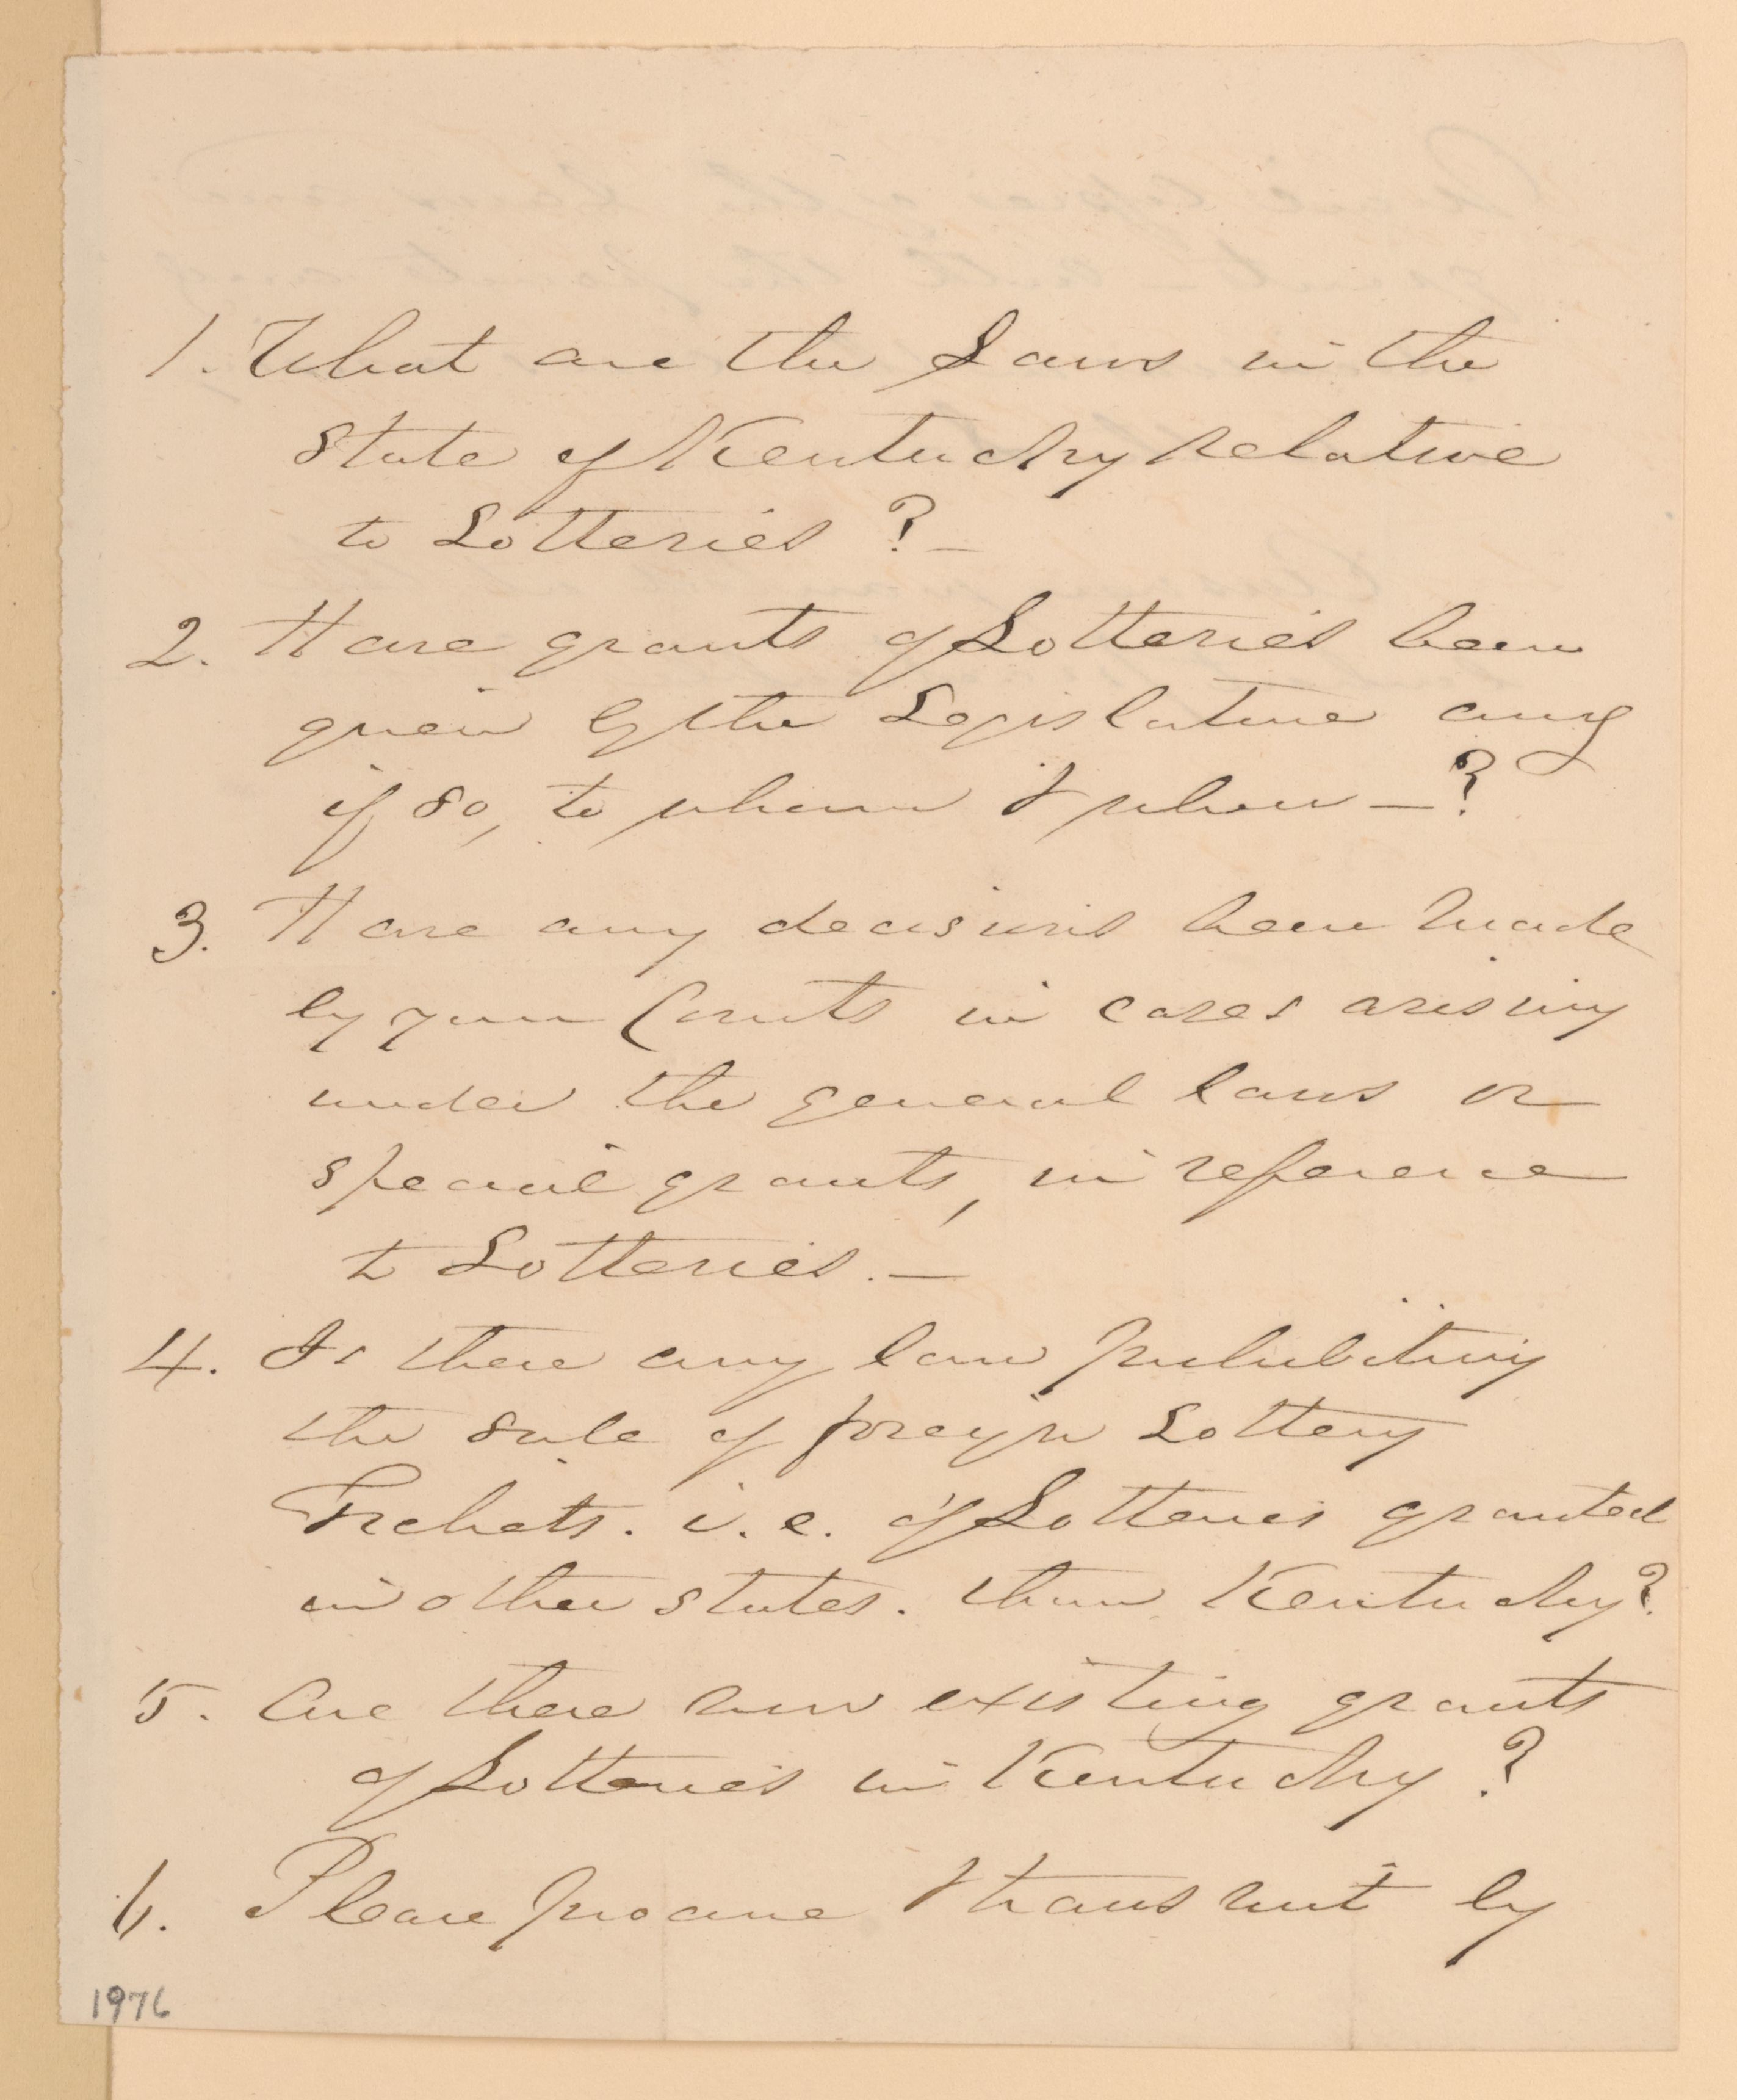 1. What are the Laws in the
State of Kentucky relative
to Lotteries ? —
2. Have grants of Lotteries been
given by the Legislature and
if so, to whom & when — ?
3. Have any decisions been made
by your Courts in cases arising
under the general laws or
special grants, in reference
to Lotteries. —
4. Is there any law prohibiting
the sale of foreign Lottery
Tickets. i.e. of Lotteries granted
in other states. than Kentucky?
5. Are there now existing grants
of Lotteries in Kentucky ?
6. Please procure & transmit by
1976